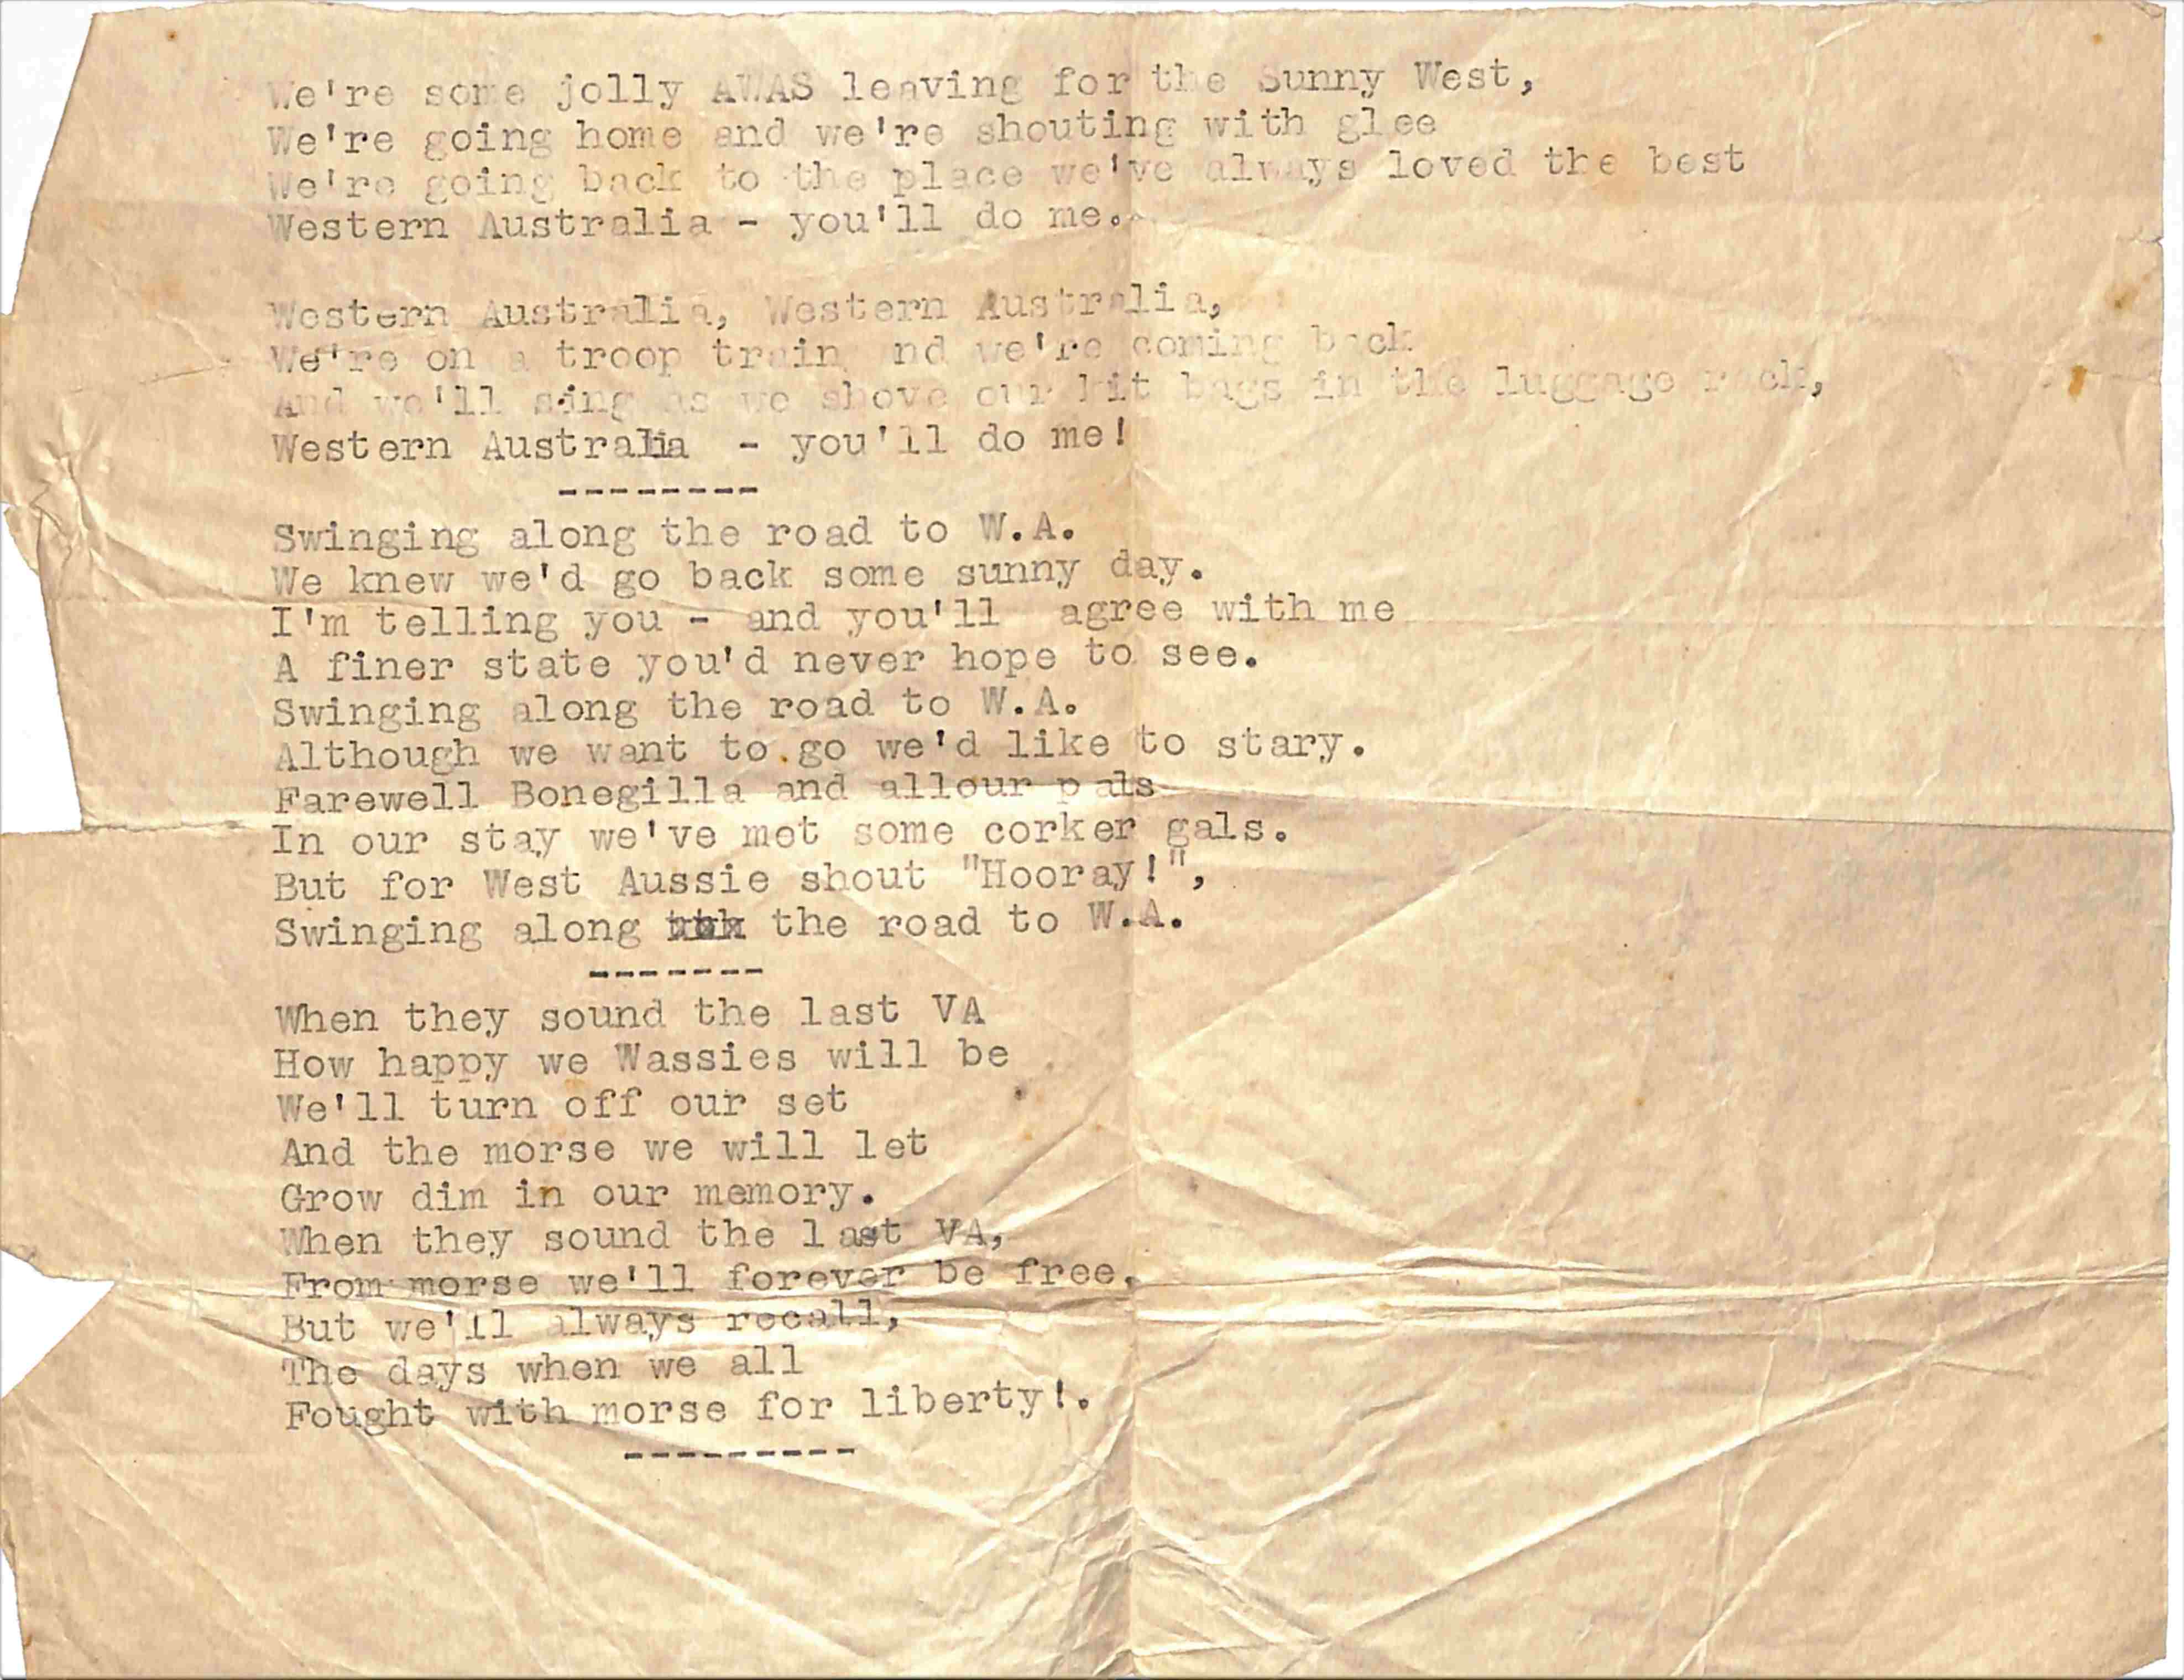 We're some jolly AWAS leaving for the Sunny West,
We're going home and we're shouting with glee
We're going back to the place we've always loved the best
Western Australia - you'll do me.

Western Australia, Western Australia,
We're on a troop train and we're coming back
And we'll sing as we shove our kit bags in the luggage rack,
Western Australia - you'll do me!
--------
Swinging along the road to W.A.
We knew we'd go back some sunny day.
I'm telling you - and you'll agree with me
A finer state you'd never hope to see.
Swinging along the road to W.A.
Although we want to go we'd like to stary.
Farewell Bonegilla and allour pals
In our stay we've met some corker gals.
But for West Aussie shout "Hooray!",
Swinging along the road to W.A.
-------
When they sound the last VA
How happy we Wassies will be
We'll turn off our set
And the morse we will let
Grow dim in our memory.
When they sound the last VA,
From morse we'll forever be free,
But we'll always recall,
The days when we all
Fought with morse for liberty!.
---------